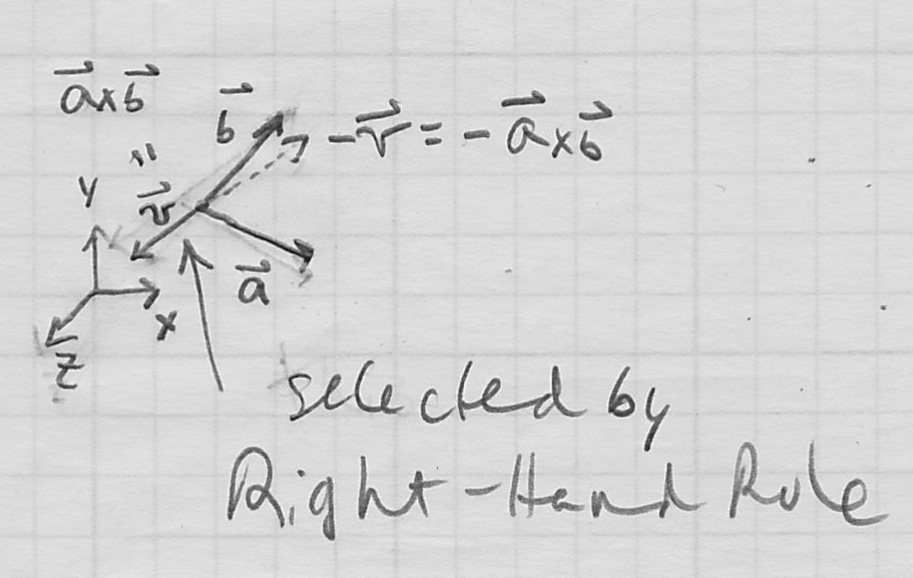 a⃗×b⃗
b⃗
-v⃗ = -a⃗×b⃗
"
y
v⃗
a⃗
x
z
selected by
Right-Hand Rule